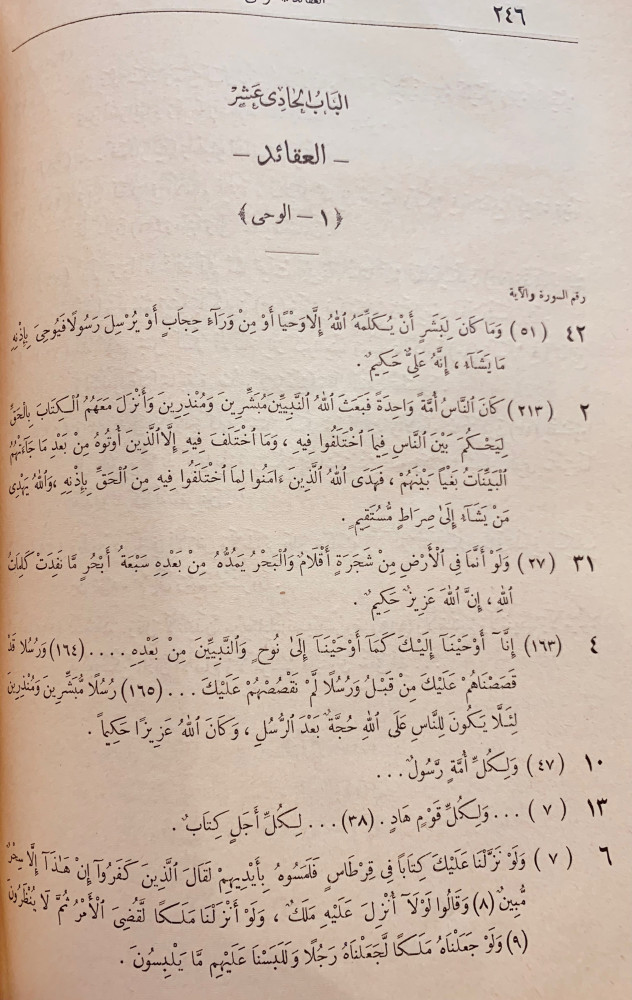 ٢٤٦
الباب الحادى عشر
- العقائد -
﴿ ١ - الوحى ﴾
رقم السورة والآية
٤٢ (٥١) وَمَا كَانَ لِبَشَرٍ أَنْ يُكَلِّمَهُ اللهُ إِلَّا وَحْيًا أَوْ مِنْ وَرَآءِ حِجَابٍ أَوْ يُرْسِلَ رَسُولًا فَيُوحِىَ بِإِذْنِهِ
مَا يَشَآءُ ، إِنَّهُ عَلِىٌّ حَكِيمٌ .
٢ (٢١٣) كَانَ النَّاسُ أُمَّةً وَاحِدَةً فَبَعَثَ اللهُ النَّبِيِّينَ مُبَشِّرِينَ وَمُنْذِرِينَ وَأَنْزَلَ مَعَهُمُ الْكِتَابَ بِالْحَقِّ
لِيَحْكُمَ بَيْنَ النَّاسِ فِيمَا اخْتَلَفُوا فِيهِ ، وَمَا اخْتَلَفَ فِيهِ إِلَّا الَّذِينَ أُوتُوهُ مِنْ بَعْدِ مَا جَآءَتْهُمُ
الْبَيِّنَاتُ بَغْياً بَيْنَهُمْ ، فَهَدَى اللهُ الَّذِينَ ءَامَنُوا لِمَا اخْتَلَفُوا فِيهِ مِنَ الْحَقِّ بِإِذْنِهِ ، وَاللهُ يَهْدِى
مَنْ يَشَآءُ إِلَىٰ صِرَاطٍ مُّسْتَقِيمٍ .
٣١ (٢٧) وَلَوْ أَنَّمَا فِى الْأَرْضِ مِنْ شَجَرَةٍ أَقْلَامٌ وَالْبَحْرُ يَمُدُّهُ مِنْ بَعْدِهِ سَبْعَةُ أَبْحُرٍ مَّا نَفِدَتْ كَلِمَاتُ
اللهِ ، إِنَّ اللهَ عَزِيزٌ حَكِيمٌ .
٤ (١٦٣) إِنَّآ أَوْحَيْنَآ إِلَيْكَ كَمَآ أَوْحَيْنَآ إِلَىٰ نُوحٍ وَالنَّبِيِّينَ مِنْ بَعْدِهِ .... (١٦٤) وَرُسُلًا قَدْ
قَصَصْنَاهُمْ عَلَيْكَ مِنْ قَبْلُ وَرُسُلًا لَّمْ نَقْصُصْهُمْ عَلَيْكَ ... (١٦٥) رُسُلًا مُّبَشِّرِينَ وَمُنْذِرِينَ
لِئَلَّا يَكُونَ لِلنَّاسِ عَلَى اللهِ حُجَّةٌ بَعْدَ الرُّسُلِ ، وَكَانَ اللهُ عَزِيزًا حَكِيماً .
١٠ (٤٧) وَلِكُلِّ أُمَّةٍ رَّسُولٌ ...
١٣ (٧) ... وَلِكُلِّ قَوْمٍ هَادٍ . (٣٨) ... لِكُلِّ أَجَلٍ كِتَابٌ .
٦ (٧) وَلَوْ نَزَّلْنَا عَلَيْكَ كِتَاباً فِى قِرْطَاسٍ فَلَمَسُوهُ بِأَيْدِيهِمْ لَقَالَ الَّذِينَ كَفَرُوآ إِنْ هَٰذَآ إِلَّا سِحْرٌ
مُّبِينٌ (٨) وَقَالُوا لَوْلَآ أُنْزِلَ عَلَيْهِ مَلَكٌ ، وَلَوْ أَنْزَلْنَا مَلَكًا لَّقُضِىَ الْأَمْرُ ثُمَّ لَا يُنْظَرُونَ
(٩) وَلَوْ جَعَلْنَاهُ مَلَكًا لَّجَعَلْنَاهُ رَجُلًا وَلَلَبَسْنَا عَلَيْهِم مَّا يَلْبِسُونَ .